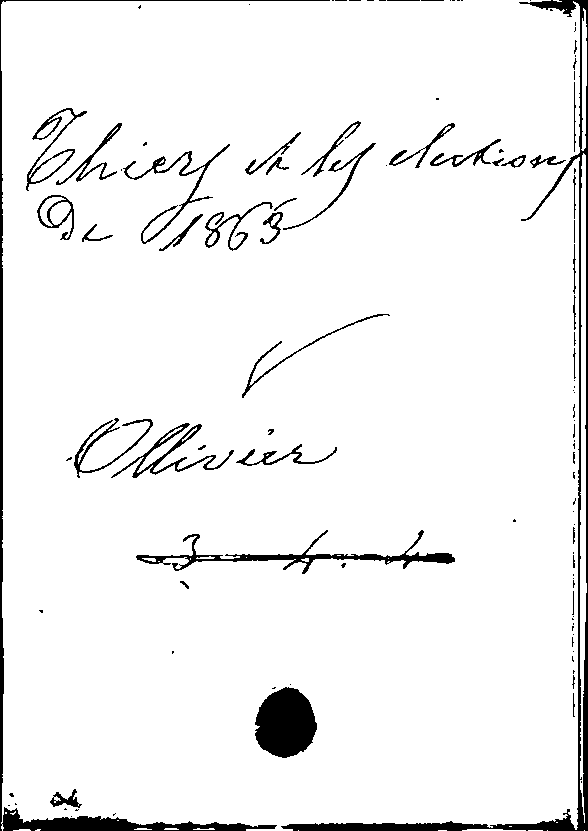 Thiers et les elections
De 1863
Ollivier
3 4. 4